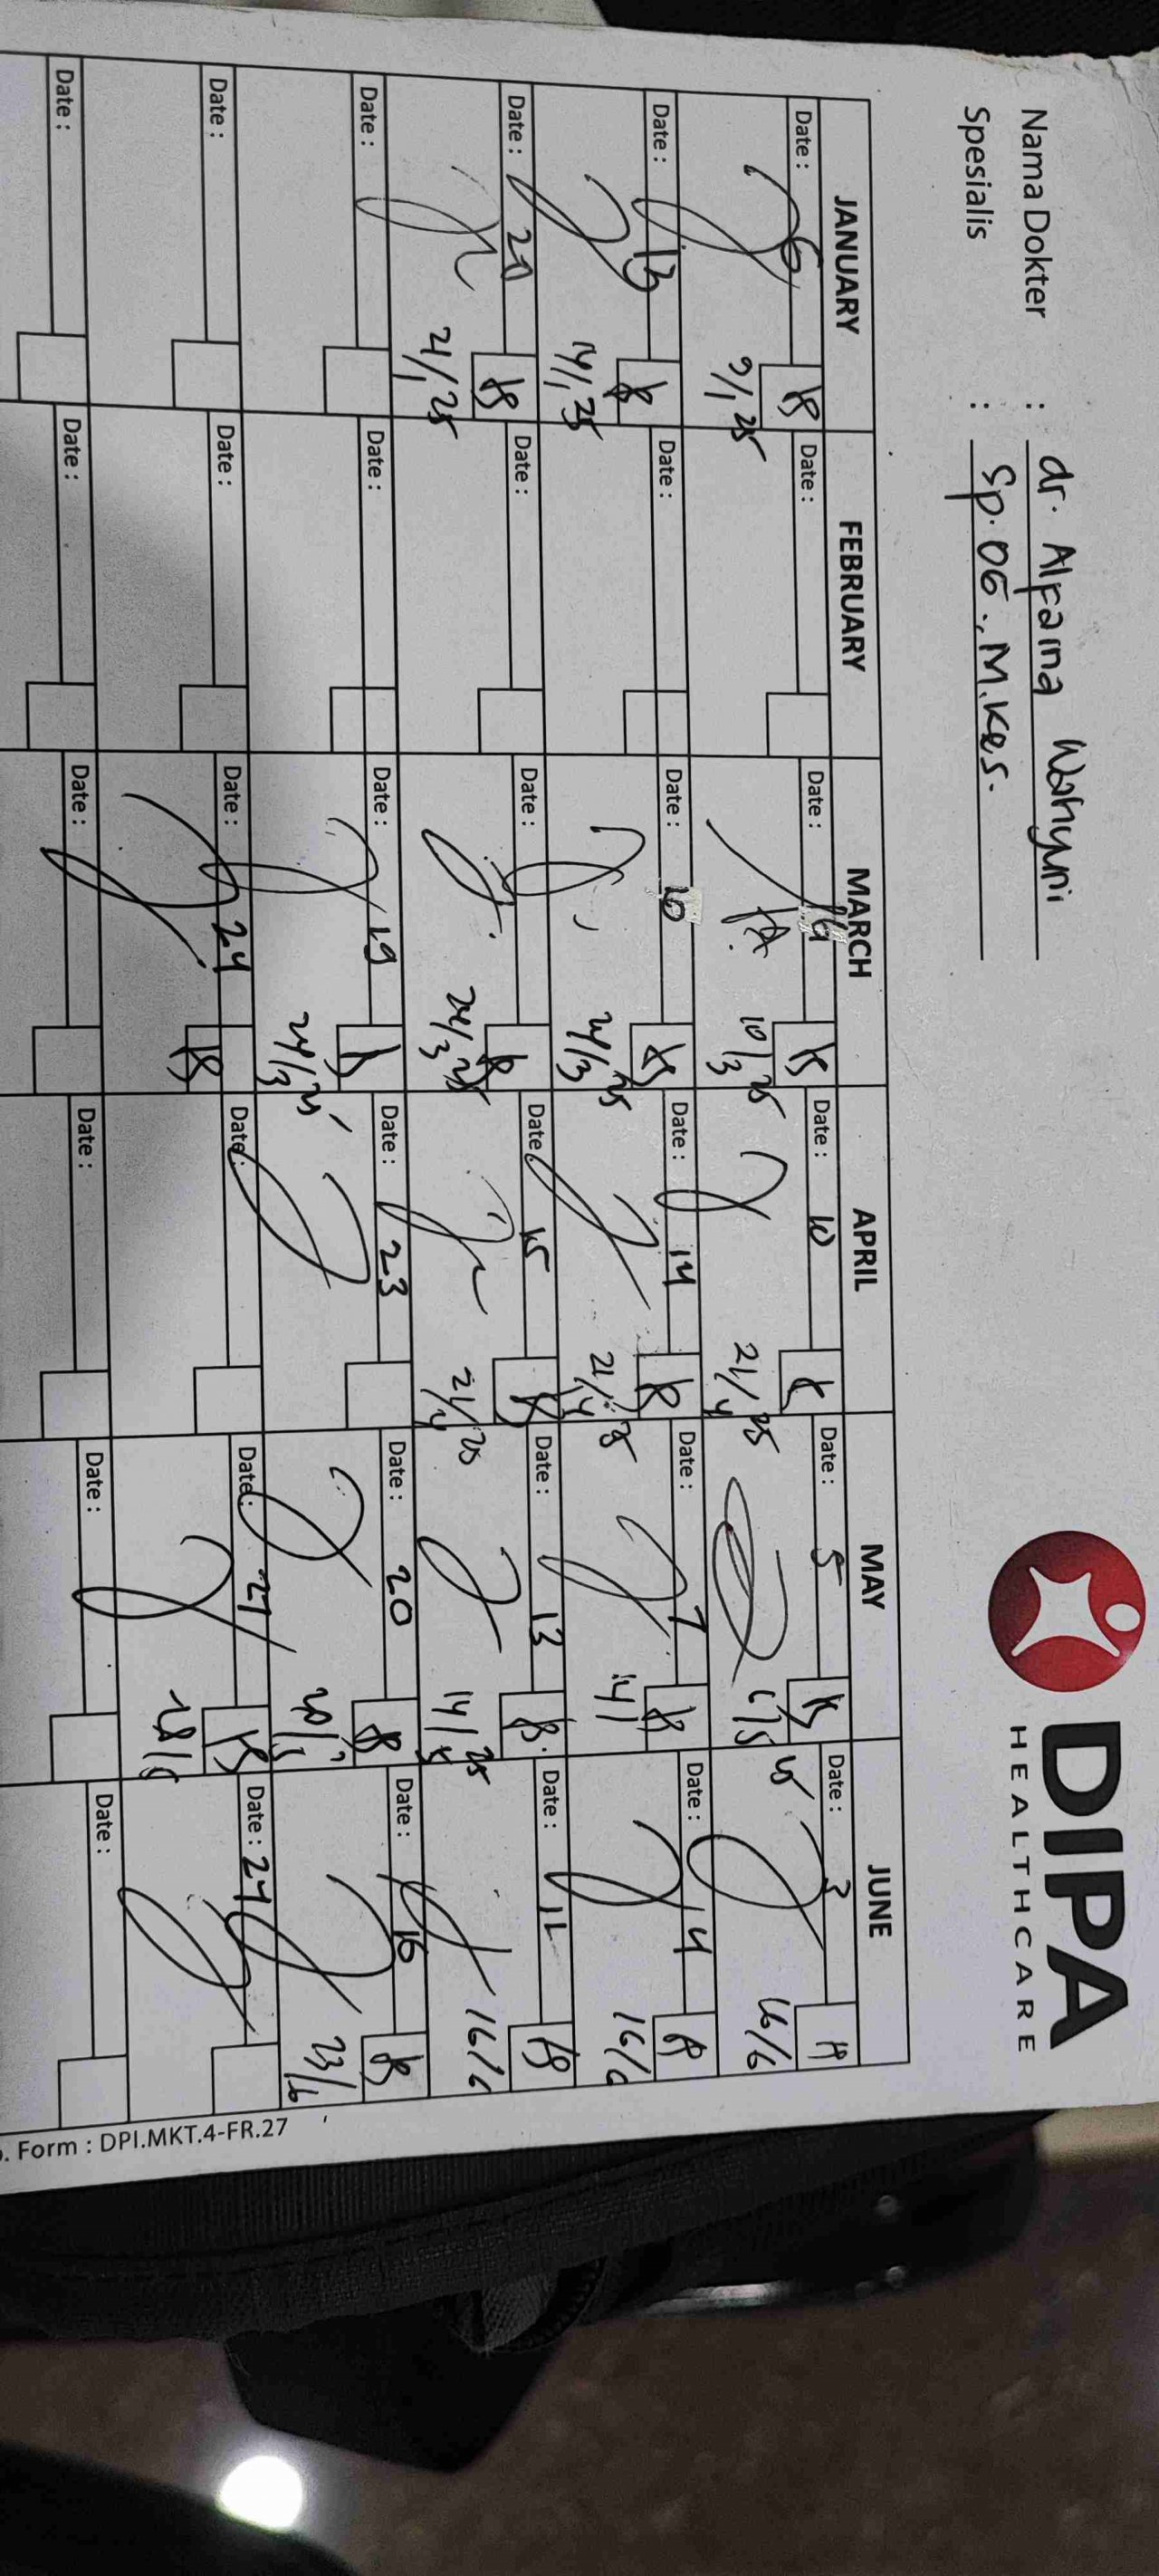 DIPA
HEALTHCARE
Nama Dokter : dr. Alfaina Wahyuni
Spesialis : Sp. OG., M.Kes.
JANUARY FEBRUARY MARCH APRIL MAY JUNE
Date : 6 Date : Date : Date : 10 Date : 5 Date : 3
9/1 25 10/3 25 21/4 25 6/5 25 16/6
Date : 13 Date : Date : 10 Date : 14 Date : 7 Date : 4
14/1 25 24/3 25 21/4 25 14/ 16/6
Date : 20 Date : Date : Date : 15 Date : 13 Date : 11
21/1 25 24/3 25 21/4 25 14/5 25 16/6
Date : Date : Date : 19 Date : 23 Date : 20 Date : 16
24/3 25 20/5 23/6
Date : Date : Date : 24 Date : Date : 27 Date : 24
28/5
Date : Date : Date : Date : Date : Date :
. Form : DPI.MKT.4-FR.27